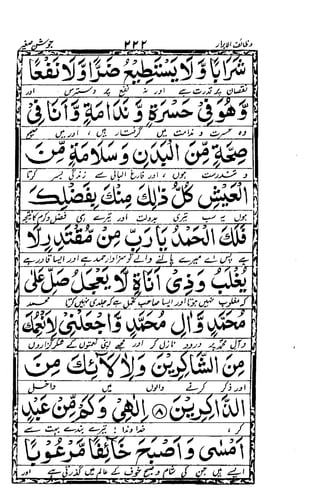 وظائف الابرار ۲۲۲ جوشن صغیر
شَرَابًا وَّلَا يَسْتَطِيْعُ ضَرًّا وَّلَا نَفْعًا
نقصان پر قدرت ہے اور نہ نفع پر دسترس اور
وَهُوَ فِيْ حَسْرَةٍ وَّنَدَامَةٍ وَّاَنَا فِيْ
وہ حسرت و ندامت میں گرفتار ہیں ، اور میں صحیح
صِحَّةٍ مِّنَ الْبَدَنِ وَسَلَامَةٍ مِّنَ
و تندرست ہوں ، اور فارغ البالی سے زندگی بسر کرتا
الْعَيْشِ كُلُّ ذٰلِكَ مِنْكَ بِفَضْلِكَ
ہوں یہ سب تیری بدولت اور تیرے ہی فضل وکرم کا نتیجہ
فَلَكَ الْحَمْدُ يَا رَبِّ مِنْ مُّقْتَدِرٍ لَّا
ہے پس اے میرے پالنے والے تو سزاوار حمد ہے اور ایسا قادر ہے
يُغْلَبُ وَذِيْ اَنَاةٍ لَّا يَعْجَلُ صَلِّ عَلٰى
کہ مغلوب نہیں ہوتا اور ایسا صاحب تحمل ہے کہ جلدی نہیں کرتا محمد
مُحَمَّدٍ وَّاٰلِ مُحَمَّدٍ وَّاجْعَلْنِيْ لِاَنْعُمِكَ
و آل محمد پر درود نازل کر اور مجھے اپنی نعمتوں کے شکر گزاروں
مِنَ الشَّاكِرِيْنَ وَلِاٰلَآئِكَ مِنَ
اور ذکر کرنے والوں میں داخل
الذَّاكِرِيْنَ ۸ اِلٰهِيْ وَكَمْ مِّنْ عَبْدٍ
کر ، خدا وندا : تیرے بندے بہت سے
اَمْسٰى وَاَصْبَحَ خَآئِفًا مَّرْعُوْبًا
ایسے ہیں جن کی شام و صبح خوف کے عالم میں گذرتی ہے اور